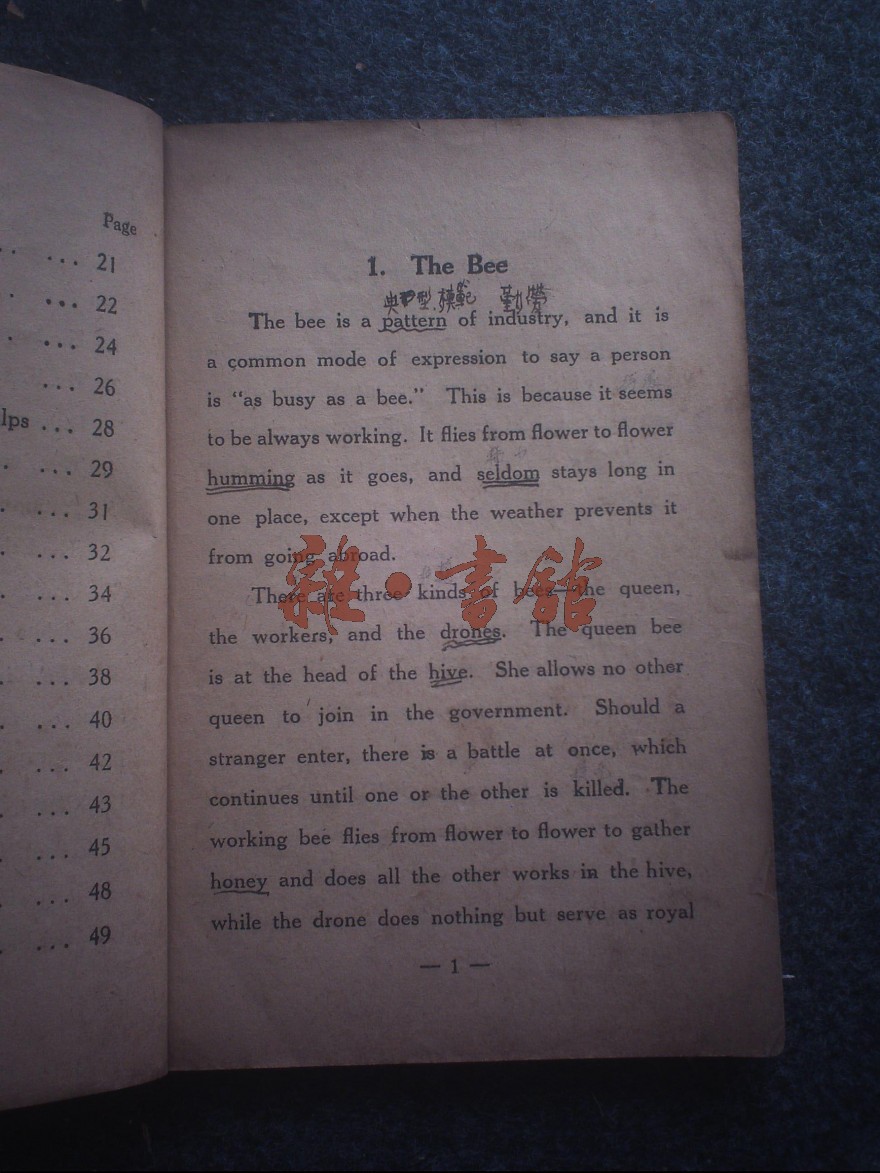 Page
... 21
... 22
... 24
... 26
lps ... 28
... 29
... 31
... 32
... 34
... 36
... 38
... 40
... 42
... 43
... 45
... 48
... 49
1. The Bee
典型,模範 勤勞
The bee is a pattern of industry, and it is
a common mode of expression to say a person
is “as busy as a bee.” This is because it seems
to be always working. It flies from flower to flower
humming as it goes, and seldom stays long in
one place, except when the weather prevents it
from going abroad.
There are three kinds of bees—the queen,
the workers, and the drones. The queen bee
is at the head of the hive. She allows no other
queen to join in the government. Should a
stranger enter, there is a battle at once, which
continues until one or the other is killed. The
working bee flies from flower to flower to gather
honey and does all the other works in the hive,
while the drone does nothing but serve as royal
— 1 —
雜·書館